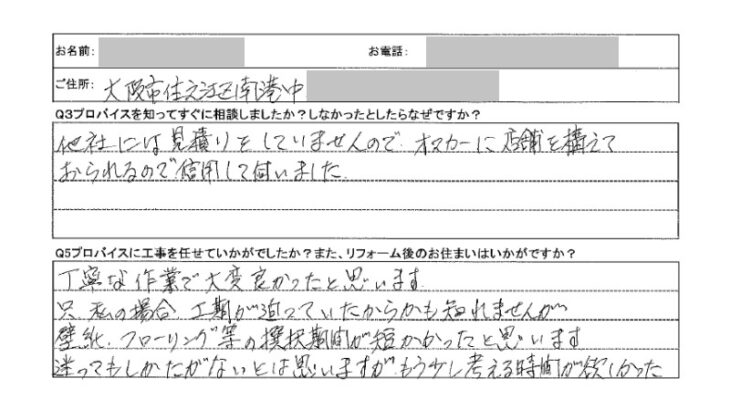 お名前: お電話:
ご住所: 大阪市住之江区南港中
Q3プロバイスを知ってすぐに相談しましたか？しなかったとしたらなぜですか？
他社には見積りをしていませんので、オスカーに店舗を構えて
おられるので信用して伺いました。
Q5プロバイスに工事を任せていかがでしたか？また、リフォーム後のお住まいはいかがですか？
丁寧な作業で大変良かったと思います
只、私の場合、工期が迫っていたからかも知れませんが
壁紙、フローリング等の選択期間が短かかったと思います
迷ってもしかたがないとは思いますが、もう少し考える時間が欲しかった